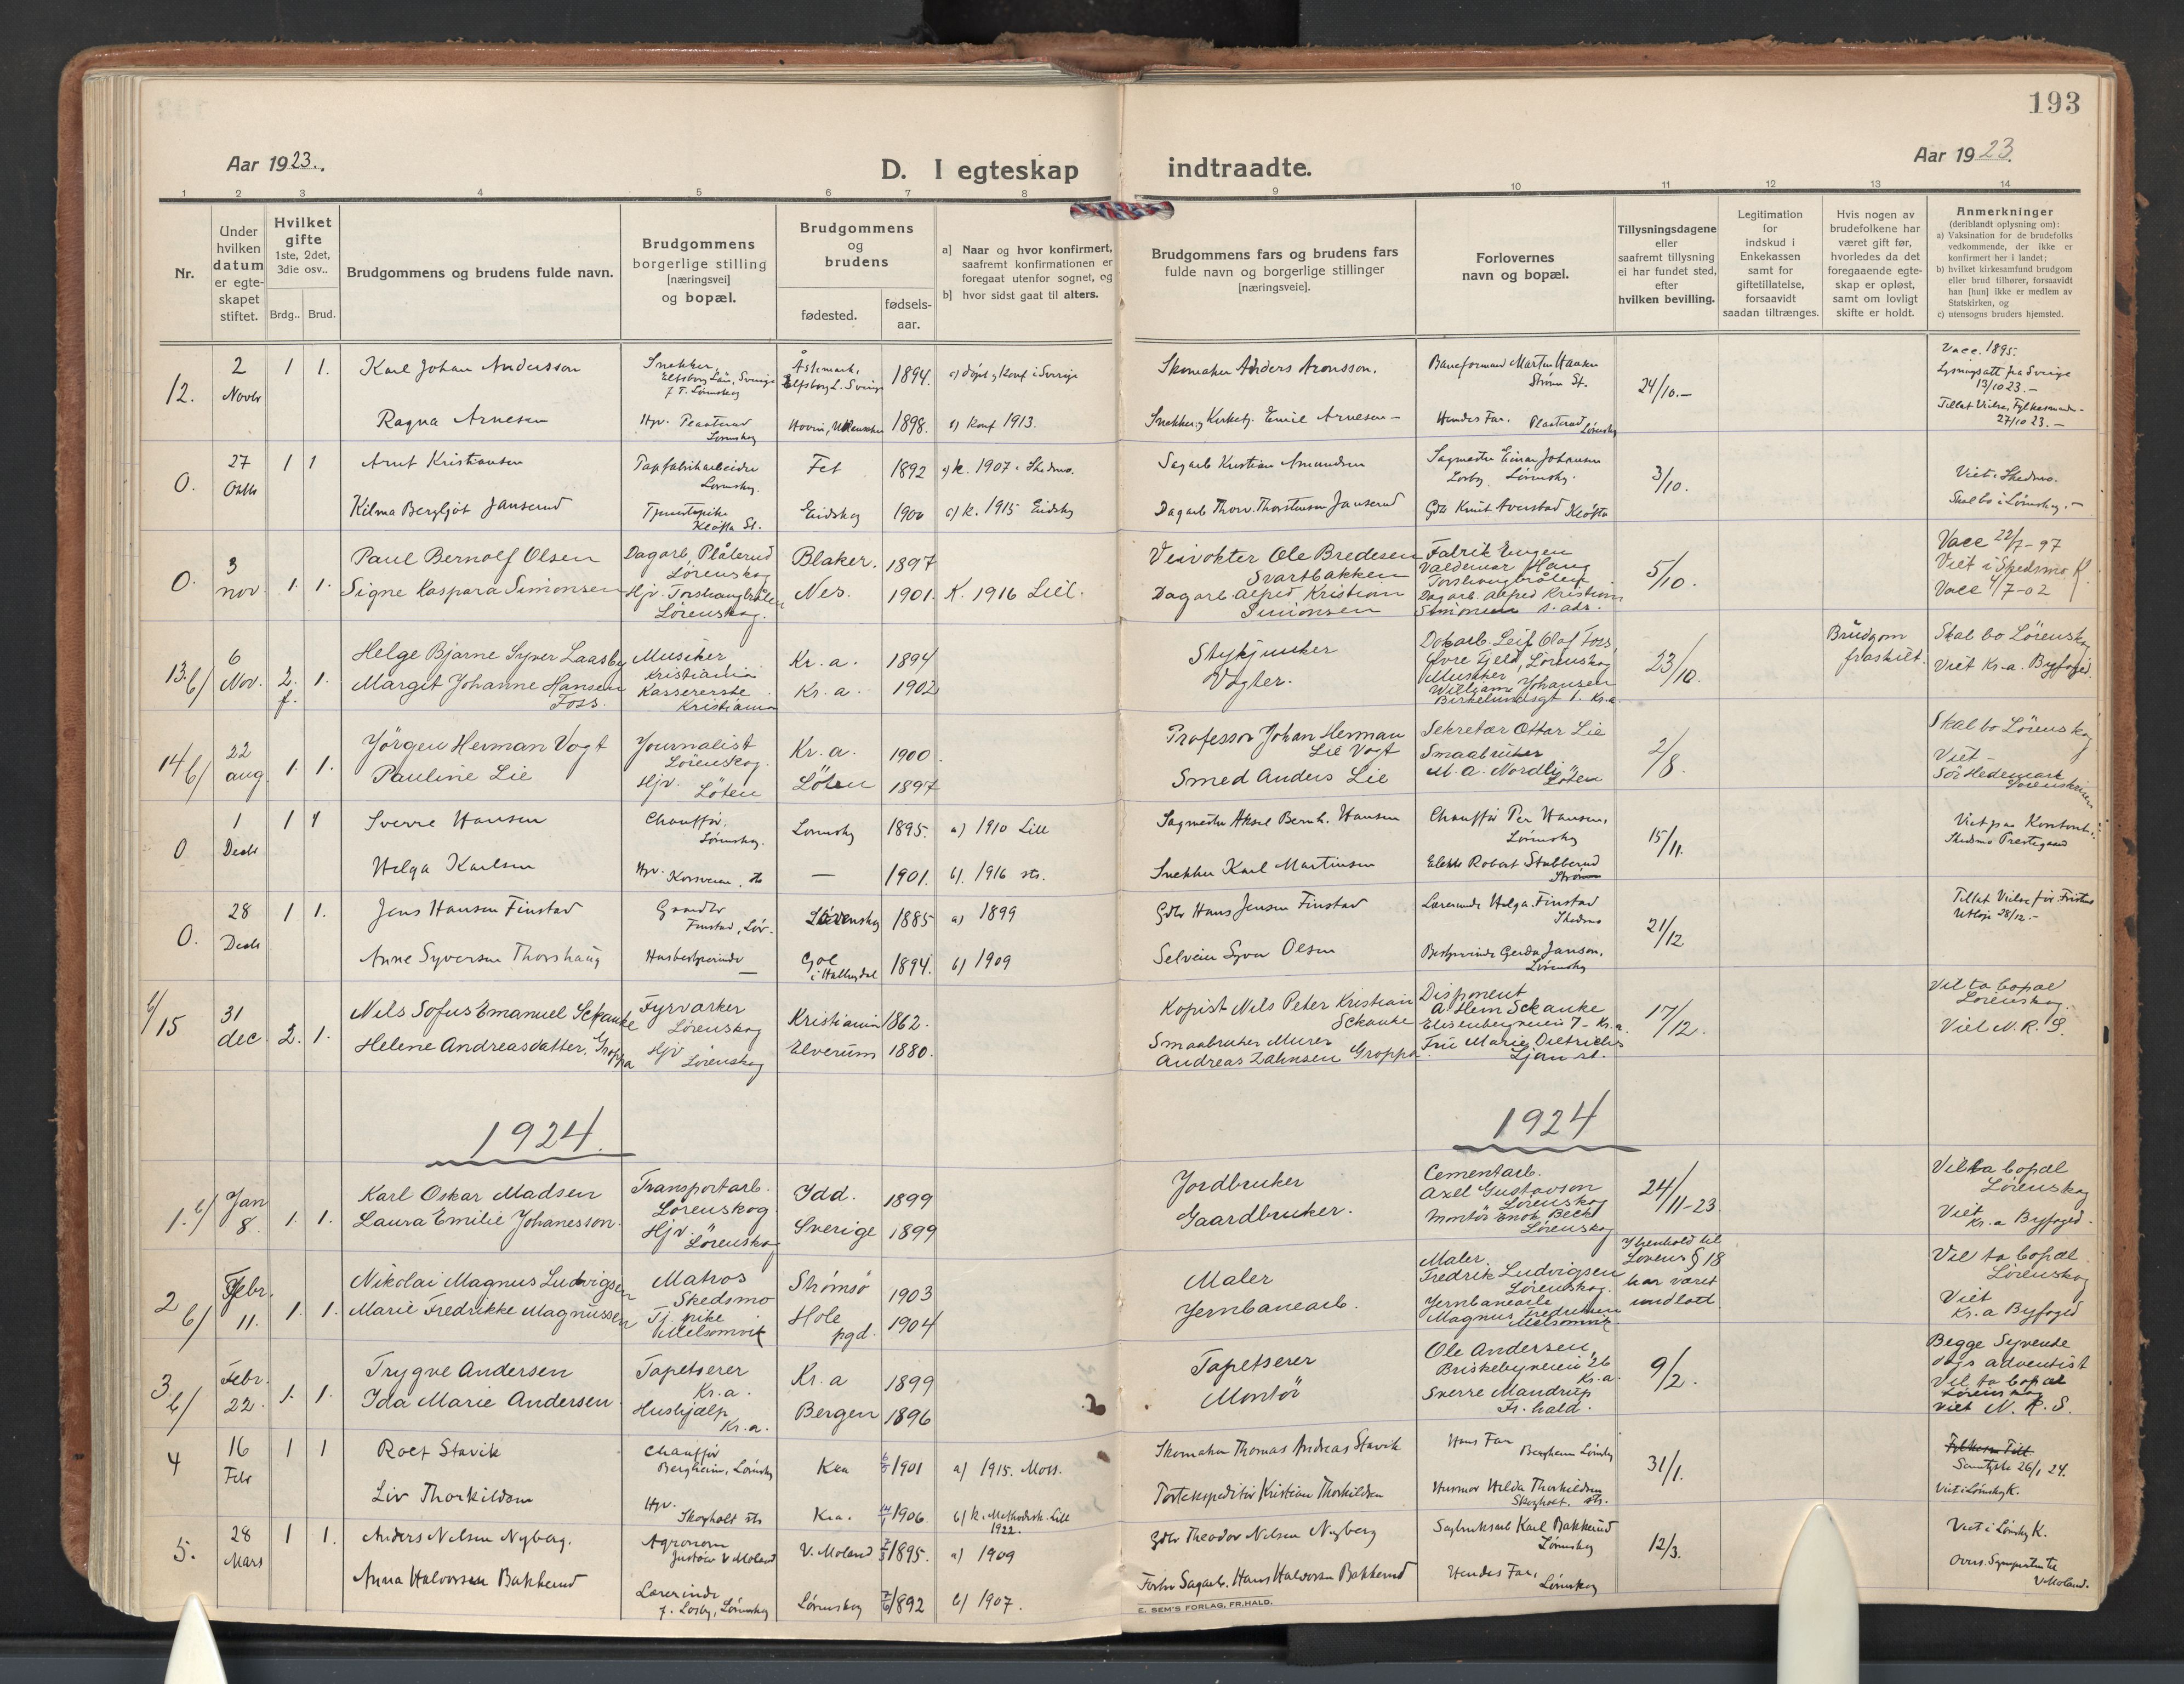 193
Aar 1923.
D. I egteskap indtraadte.
Aar 1923.
1 2 3 4 5 6 7 8 9 10 11 12 13 14
Nr.
Under hvilken datum er egte-skapet stiftet.
Hvilket gifte
1ste, 2det, 3die osv..
Brdg.. Brud.
Brudgommens og brudens fulde navn.
Brudgommens borgerlige stilling
[næringsvei]
og bopæl.
Brudgommens og brudens
fødested.
fødsels-aar.
a) Naar og hvor konfirmert, saafremt konfirmationen er foregaat utenfor sognet, og
b) hvor sidst gaat til alters.
Brudgommens fars og brudens fars
fulde navn og borgerlige stillinger
[næringsveie].
Forlovernes
navn og bopæl.
Tillysningsdagene
eller
saafremt tillysning
ei har fundet sted,
efter
hvilken bevilling.
Legitimation
for
indskud i
Enkekassen
samt for
giftetillatelse,
forsaavidt
saadan tiltrænges.
Hvis nogen av
brudefolkene har
været gift før,
hvorledes da det
foregaaende egte-
skap er opløst,
samt om lovligt
skifte er holdt.
Anmerkninger
(deriblandt oplysning om):
a) Vaksination for de brudefolks
vedkommende, der ikke er
konfirmert her i landet;
b) hvilket kirkesamfund brudgom
eller brud tilhører, forsaavidt
han [hun] ikke er medlem av
Statskirken, og
c) utensogns bruders hjemsted.
12. 2 Novbr 1 1. Karl Johan Andersson Snekker, Elfsborg Län, Sverige 1894. Skomaker Anders Aronsson. Baneformand Martin Haaken Strøm St. 24/10.- Vacc. 1895. Lysningsatt fra Sverige 13/10 23.-
Ragna Arnesen Hjv. 1898. b) Konf 1913. Emil Arnesen - Hendes Far. 27/10 23.-
0. 27 Oktb 1 1 Arnt Kristiansen Fet 1892 a) k. 1907 i Skedsmo. Sagarb Kristian Amundsen Sagmester Einar Johansen Losby, Lørenskog. 3/10. Viet i Skedsmo.
Kilma Bergljot Janserud Kløfta St. Eidskog 1900 a) k. 1915 Eidskog Dagarb Thorv. Thorstensen Janserud Kløfta Skal bo i Lørenskog.-
0. 3 nov. 1. 1. Paul Bernolf Olsen Dagarb, Plåterud Lørenskog Blaker. 1897 Veivokter Ole Bredesen Svartbakken Valdemar Haug 5/10. Vacc 22/7-97 Viet i Skedsmo K.
Signe Kaspara Simonsen Hjv. Lørenskog. Nes. 1901. K. 1916 Lill. Dagarb Alfred Kristian Simonsen Dagarb. Alfred Kristian Simonsen s. adr. Vacc 4/7-02
13. b/ 6 Nov. 2. f. 1. Helge Bjarne Syver Laasby Musiker Kristiania Kr.a. 1894 Stykjunker Dokarb. Leif Olaf Foss, Øvre Fjeld, Lørenskog 23/10. Brudgom fraskilt. Skal bo Lörenskog
Margit Johanne Hansen Foss. Kassererske Kristiania Kr.a. 1902 Vogter. Musiker William Johansen Birkelundsgt 1. Kr.a. Viet Kr.a. Byfoged.
14 b/ 22 aug. 1. 1. Jörgen Herman Vogt Journalist Lörenskog. Kr.a. 1900. Professor Johan Herman Lie Vogt Sekretær Ottar Lie 2/8. Skal bo Lörenskog
Pauline Lie Hjv. Löten Löten 1897 Smed Anders Lie Smaabruker M.A. Nordli Löten Viet - Sör Hedemark Sorenskriver
0 1 Decb 1 1 Sverre Hansen Chauffør, Lørenskog. Lørenskog 1895. a) 1910 Lill Sagmester Aksel Bernh. Hansen Chauffør Per Hansen, Lørenskog 15/11. Viet paa Kontoret i Skedsmo Prestegaard
Helga Karlsen Hjv. Korsveien, sts — 1901. b). 1916 sts. Snekker Karl Martinsen Robert Stubberud Strøm
0. 28 Decb 1 1. Jens Hansen Finstad Gaardbr Finstad, Lør. Lørenskog 1885 a) 1899 Gdbr Hans Jensen Finstad Lærerinde Helga Finstad Skedsmo 21/12 28/12.-
Anne Syversen Thorshaug Husbestyrerinde — Gol i Hallingdal 1894. b) 1909 Selveier Syver Olsen Bestyrerinde Gerda Janson, Lørenskog
b/15 31 dec. 2. 1. Nils Sofus Emanuel Schanke Fyrvarker Lörenskog Kristiania 1862. Kopist Nils Peter Kristian Schanke Disponent A. Hem Schanke Elisenbergveien 7 - Kr.a. 17/12. Vil ta bopæl Lorenskog.
Helene Andreasdatter, Groppa Hjv Lörenskog Elverum 1880. Smaabruker Murer Andreas Zahnsen Groppa Fru Marie Dietrichs Ljan st. Viet N.R.S.
1924 1924
1. b/ Jan 8. 1. 1. Karl Oskar Madsen Transportarb. Lørenskog Idd. 1899 Jordbruker Cementarb. Axel Gustavson Lörenskog 24/11-23. Vil ta bopæl Lörenskog
Laura Emilie Johanesson. Hjv. Lörenskog Sverige 1899 Gaardbruker. Montör Enok Beck Lörenskog Viet Kr.a Byfoged.
2 b/ Febr. 11. 1. 1. Nikolai Magnus Ludvigsen Matros Skedsmo Strømsö 1903 Maler Maler Fredrik Ludvigsen Lörenskog. I henhold til Lovens § 18 har været undlatt. Vil ta bopæl Lörenskog
Marie Fredrikke Magnussen Tj. pike Melsomvik Hole pgd. 1904 Jernbanearb. Jernbanearb. Magnus Fredriksen Melsomvik. Viet Kr.a Byfoged
3 b/ Febr. 22. 1. 1. Trygve Andersen Tapetserer Kr.a. Kr.a 1899 Tapetserer Ole Andersen, Briskebyveien 26 Kr.a. 9/2. Begge Syvende dags adventist
Ida Marie Andersen Hushjælp Kr.a. Bergen 1896 Montör Sverre Mandrup Fr.hald. Vil ta bopæl Lörenskog Viet N.R.S.
4 16 Febr 1 1 Rolf Stavik Chauffør Bergheim, Lørenskog Kra 1901 a) 1915. Moss. Skomaker Thomas Andreas Stavik Hans Far Bergheim Lørenskog 31/1. Samtykke 26/1 24.
Liv Thorkildsen Hjv. Skogholt sts Kra. 1906. b) k. Methodistk. Lill 1922. Kristian Thorkildsen Husmor Hilda Thorkildsen Skogholt. sts. Viet i Lørenskog K.
5. 28 Mars 1 1. Anders Nelsen Nyberg. Agronom V Moland V. Moland 1895. a) 1909 Gdbr Theodor Nelsen Nyberg Sagbruksarb Karl Bakkerud Lørenskog 12/3. Viet i Lørenskog K.
Anna Halvorsen Bakkerud Lærerinde f. Losby, Lørenskog Lørenskog 1892 b) 1907. Sagarb. Hans Halvorsen Bakkerud Hendes Far, Lørenskog V. Moland.
E. SEM'S FORLAG, FR.HALD.